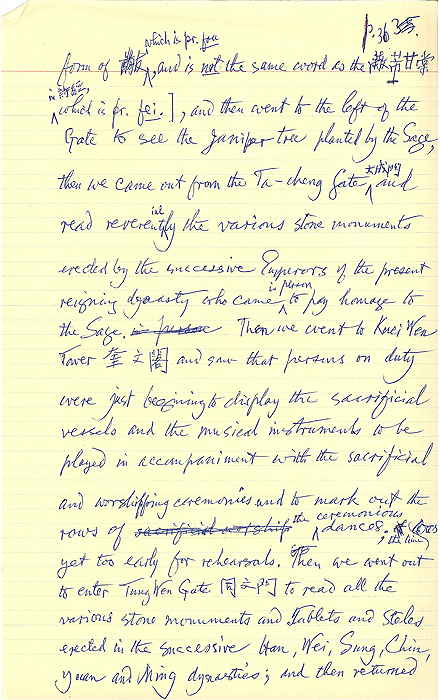 p.36
which is pr. fou
form of and is not the same word as the 蔽芾甘棠
in 詩經,
which is pr. fei.], and then went to the left of the
Gate to see the Juniper tree planted by the Sage,
then we came out from the Ta-cheng Gate 大成門 and
read reverently the various stone monuments
erected by the successive Emperors of the present
reigning dynasty who came in person to pay homage to
the Sage. in person Then we went to Kuei Wen
Tower 奎文閣 and saw that persons on duty
were just beginning to display the sacrificial
vessels and the musical instruments to be
played in accompaniment with the sacrificial
and worshipping ceremonies and to mark out the
rows of sacrificial worship the ceremonious dances,
yet too early for rehearsals. Then we went out
to enter Tung Wen Gate 同文門 to read all the
various stone monuments and Tablets and Steles
erected in the successive Han, Wei, Sung, Chin,
Yuan and Ming dynasties; and then returned